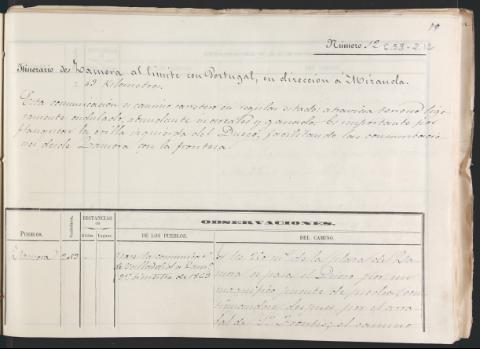 19
Número 12 C.53-2.12
Itinerario de Zamora al límite con Portugal, en dirección a Miranda.
49 Kilómetros.
Esta comunicación es camino carretero en regular estado atraviesa terreno lige-
ramente ondulado, abundante en cereales y ganado. Es importante por
flanquear la orilla izquierda del Duero, facilitando las comunicacio-
nes desde Zamora con la frontera.
OBSERVACIONES.
DISTANCIAS
PUEBLOS.
DE LOS PUEBLOS.
DEL CAMINO.
Zamora
Vease la comunicac.
de Valladolid a Zamora
de 1849
de la plaza de Za-
mora se pasa el Duero por un
magnífico puente de piedra, con-
tinuando despues por el arra-
bal de Sn. Frontis; el camino